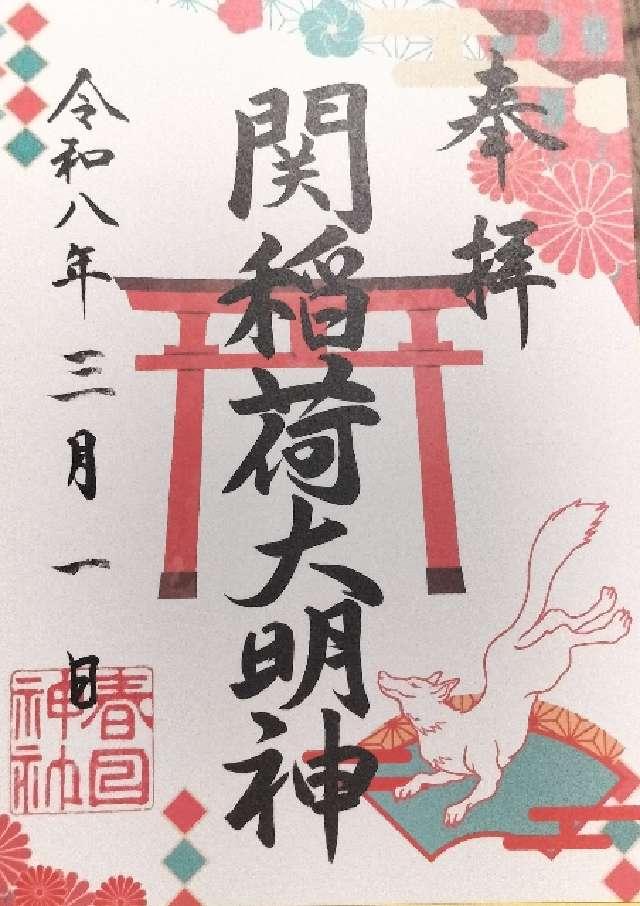 奉拝
関稲荷大明神
令和八年三月一日
春日神社